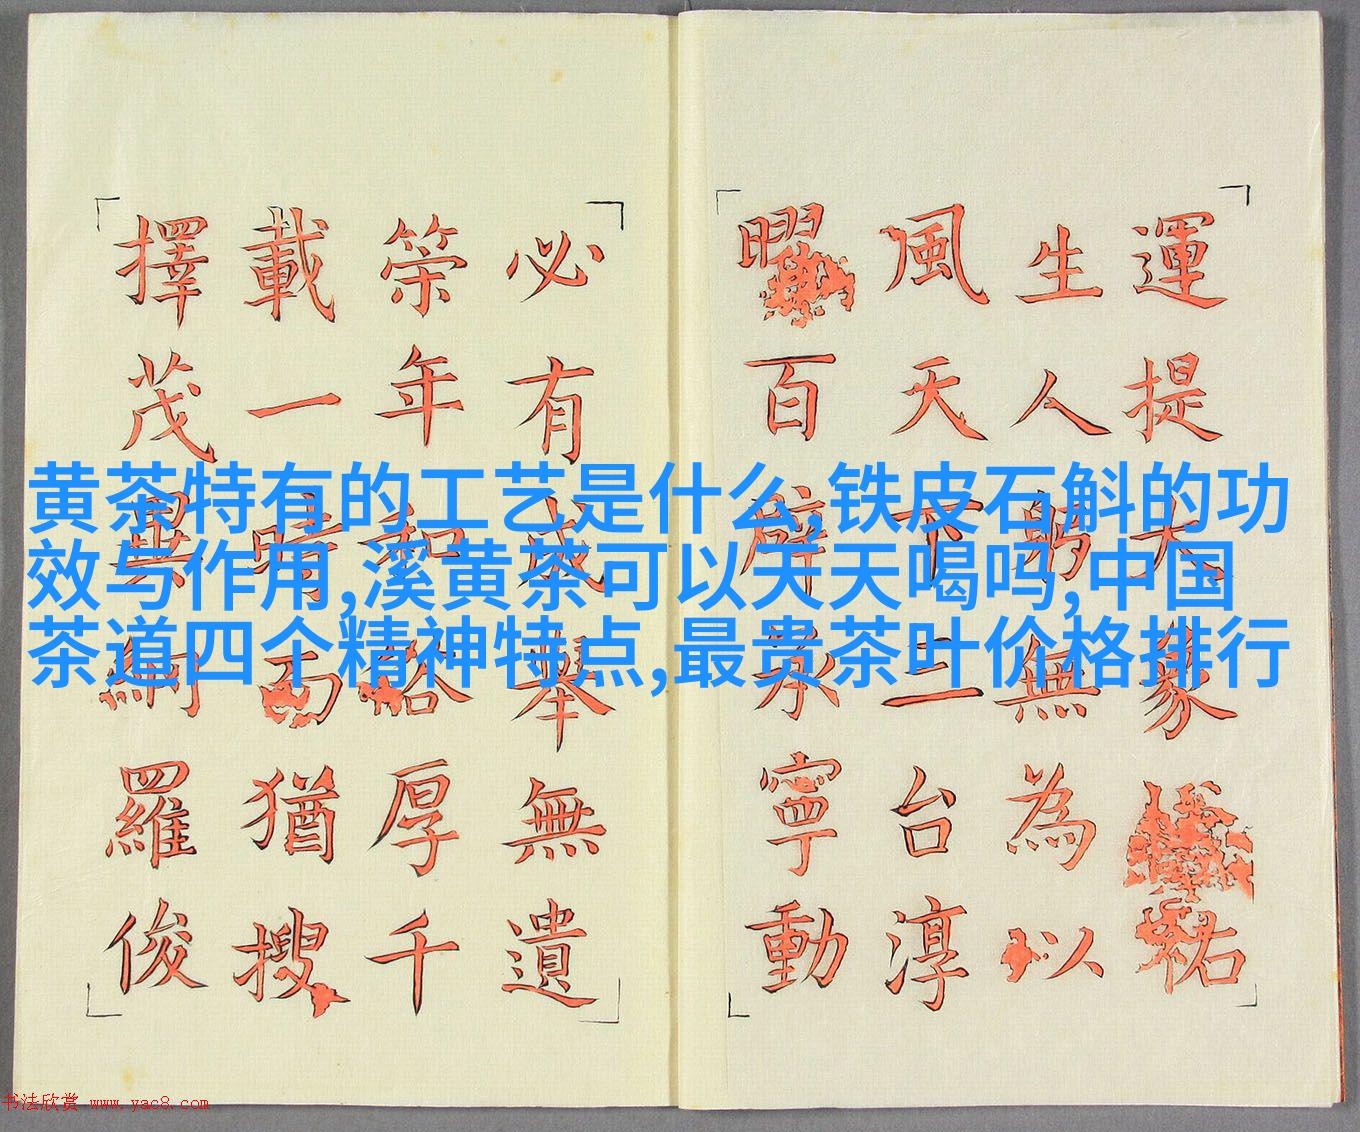 黄茶特有的工艺是什么,铁皮石斛的功
效与作用,溪黄茶可以天天喝吗,中国
茶道四个精神特点,最贵茶叶价格排行
運提大象祐
生人躬無為以
風天下三台淳
曜百辟承寧動
必有成舉無遺
年和俗厚千
載一時雨猶搜
擇茂異網羅俊
书法欣赏 www.yac8.com